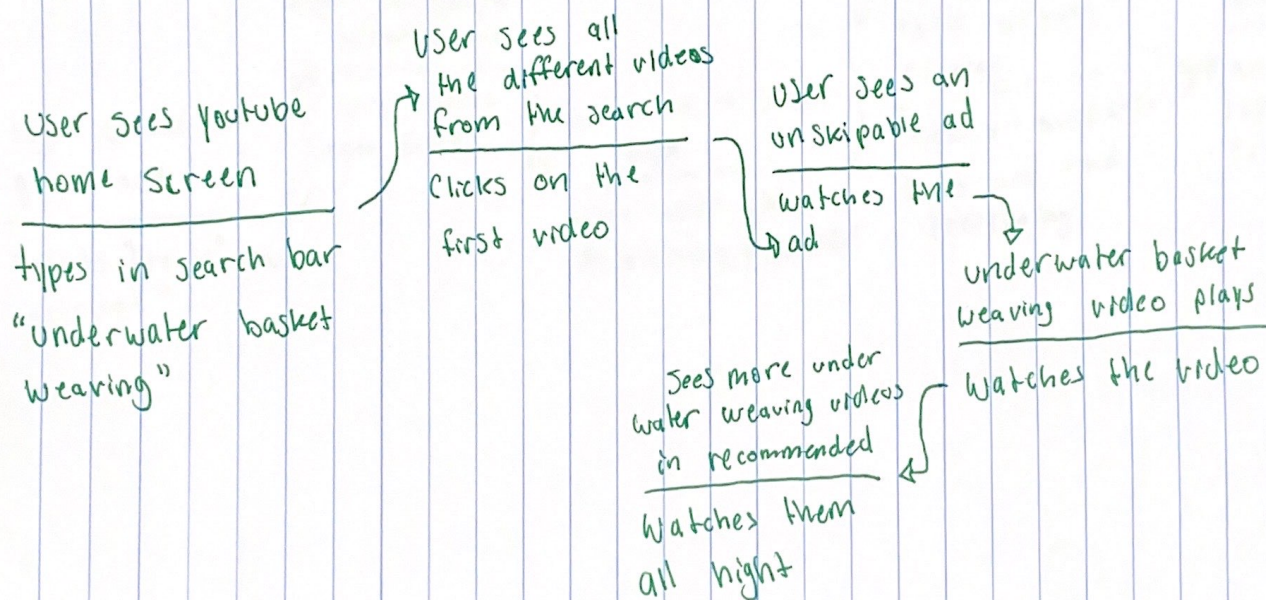 User sees Youtube
home screen
types in search bar
"underwater basket
weaving"
User sees all
the different videos
from the search
Clicks on the
first video
User sees an
unskipable ad
watches the
ad
underwater basket
weaving video plays
Watches the video
Sees more under
water weaving videos
in recommended
Watches them
all night